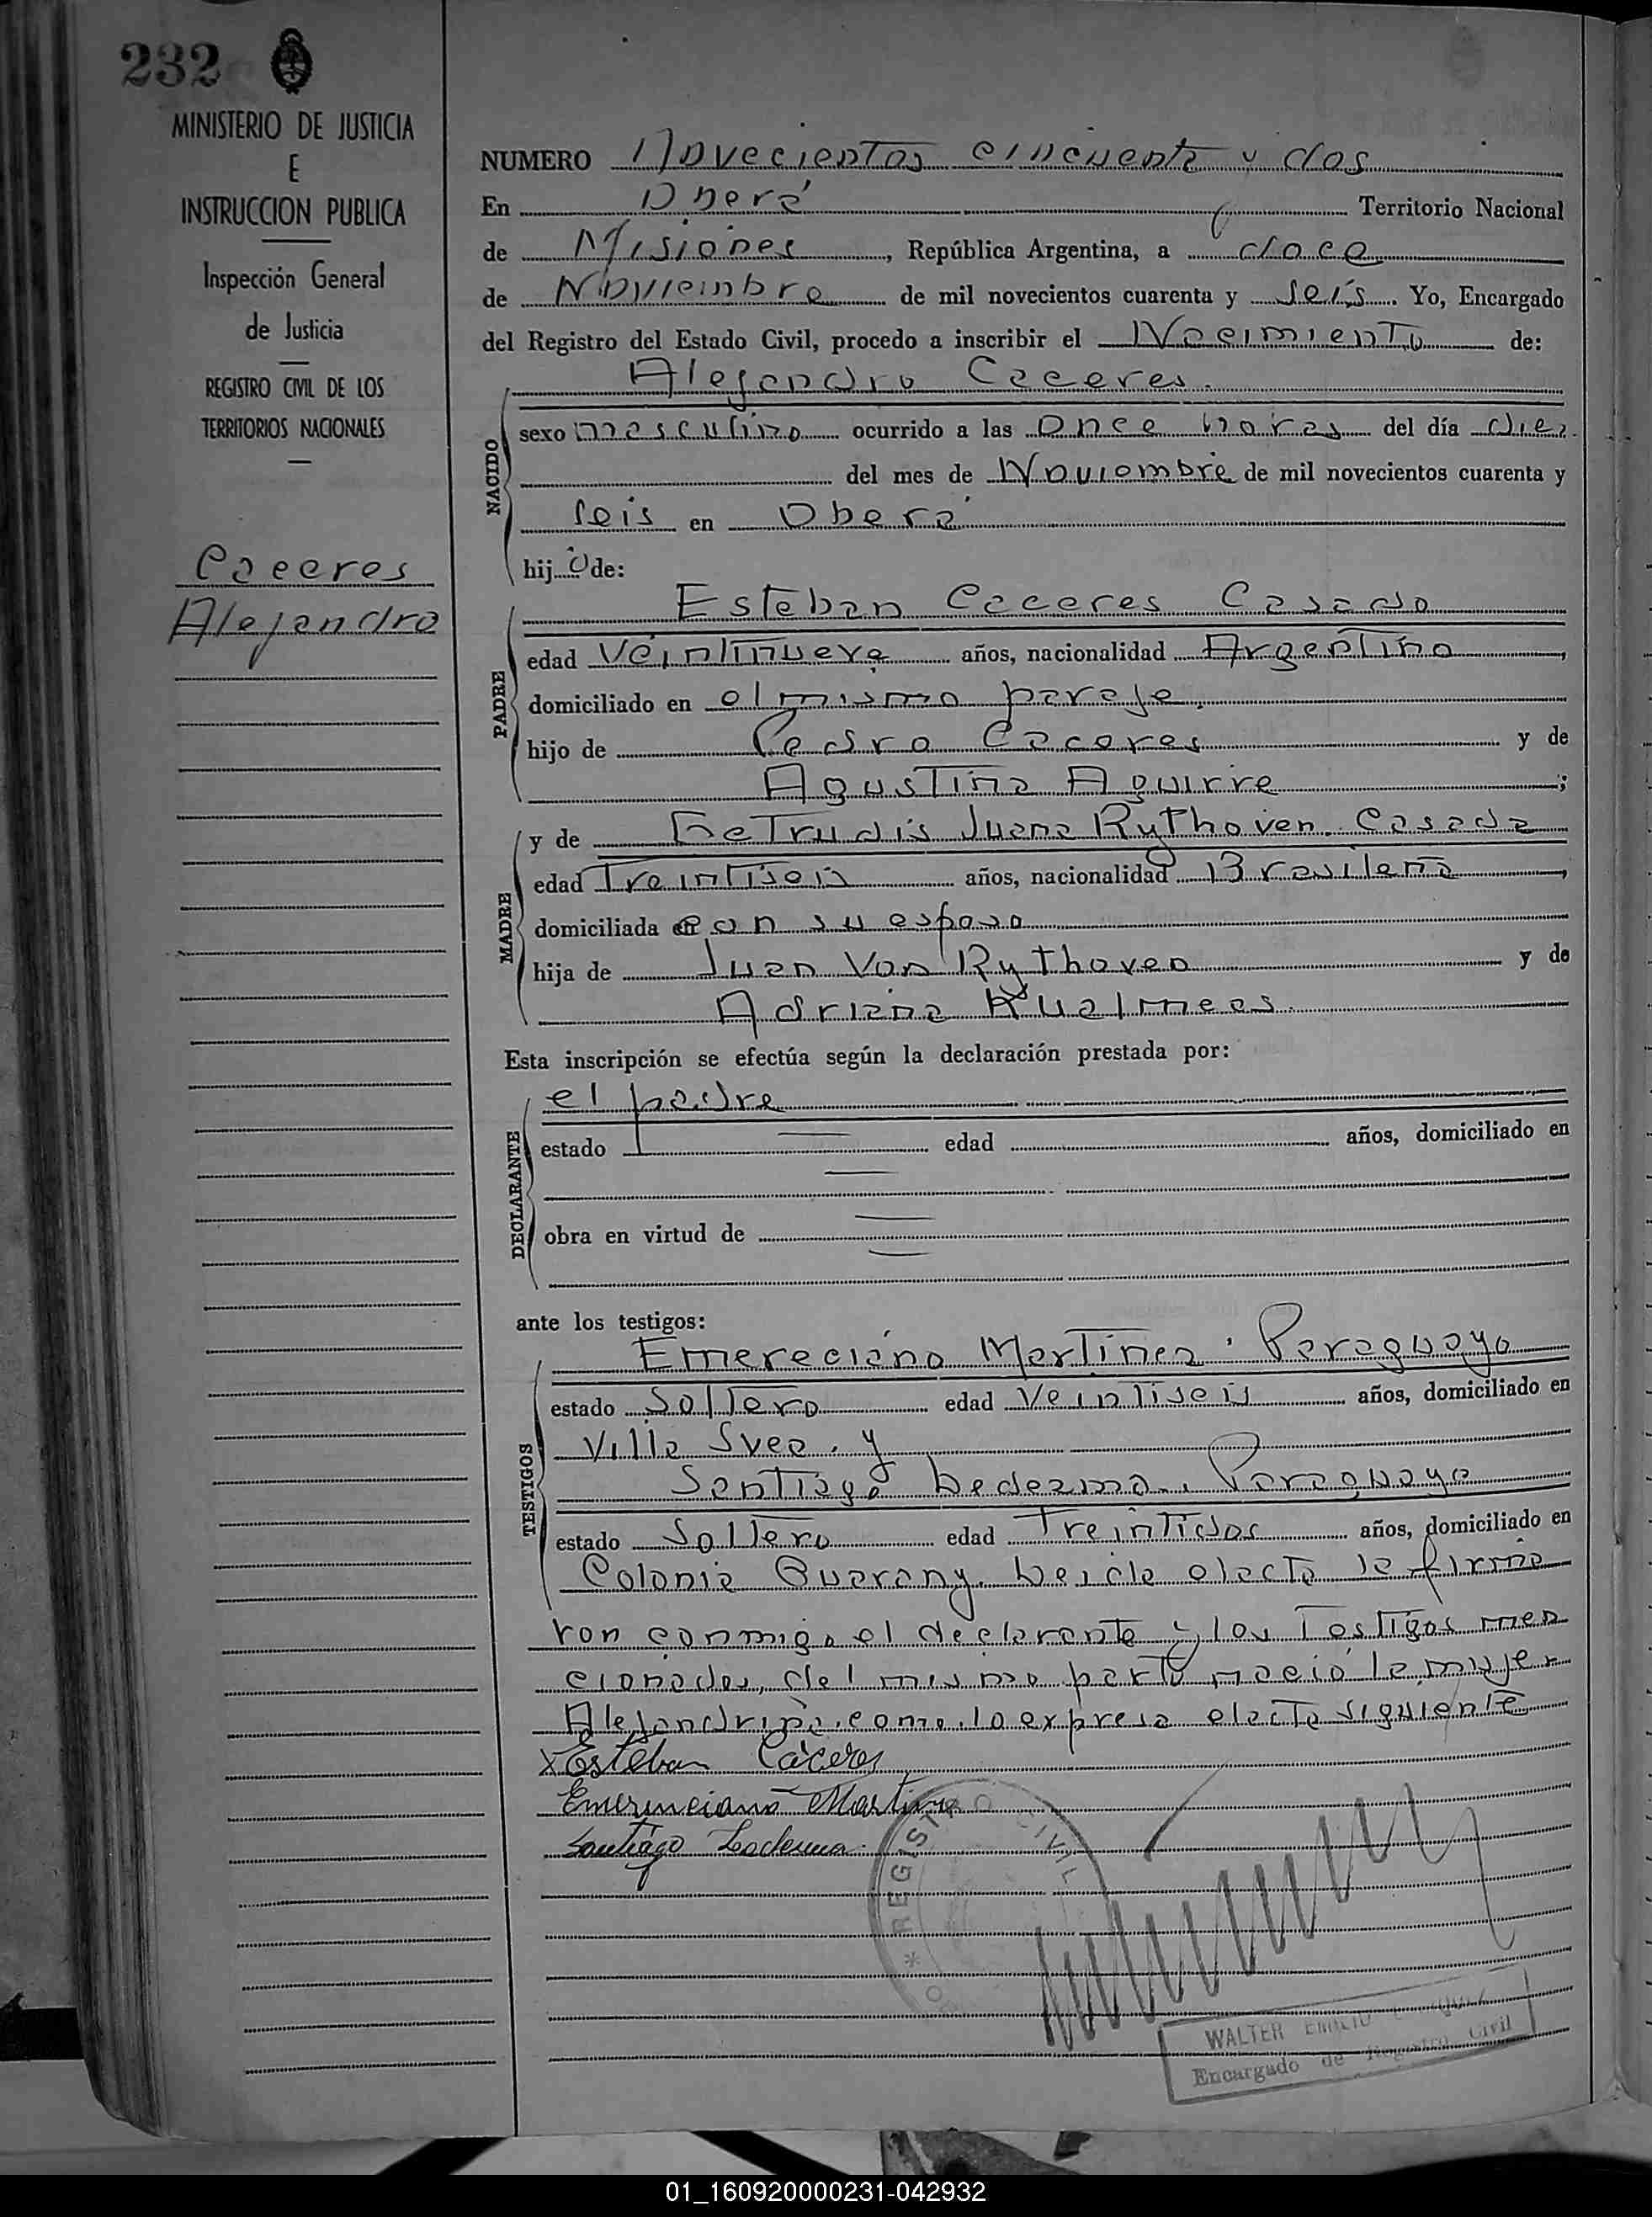 232
MINISTERIO DE JUSTICIA
E
INSTRUCCION PUBLICA
Inspección General
de Justicia
REGISTRO CIVIL DE LOS
TERRITORIOS NACIONALES
Caceres
Alejandro
NUMERO Novecientos cincuenta y dos
En Oberá Territorio Nacional
de Misiones, República Argentina, a doce
de Noviembre de mil novecientos cuarenta y seis. Yo, Encargado
del Registro del Estado Civil, procedo a inscribir el Nacimiento de:
Alejandro Caceres.
NACIDO
sexo masculino ocurrido a las once horas del día diez
del mes de Noviembre de mil novecientos cuarenta y
seis en Oberá
hijo de:
PADRE
Esteban Caceres Casado
edad Veintinueve años, nacionalidad Argentino,
domiciliado en el mismo paraje.
hijo de Pedro Caceres y de
Agustina Aguirre;
MADRE
y de Getrudis Juana Rythoven. Casada
edad Treintiseis años, nacionalidad Brasileña,
domiciliada con su esposo
hija de Juan Van Rythoven y de
Adriana
Esta inscripción se efectúa según la declaración prestada por:
DECLARANTE
el padre
estado edad años, domiciliado en
obra en virtud de
ante los testigos:
TESTIGOS
Emereciano Martinez. Paraguayo
estado Soltero edad Veintiseis años, domiciliado en
Villa Svea. y
Santiago Ledezma. Paraguayo
estado Soltero edad Treintidos años, domiciliado en
Colonia Guarany. Leida el acta la firma
ron conmigo el declarante y los Testigos men
cionados, del mismo parto nació la mujer
Alejandrina. como lo expresa el acta siguiente
x Esteban Cáceres
Emerenciano Martinez
Santiago Ledesma.
REGISTRO CIVIL
WALTER EMILIO
Encargado de Registro Civil
01_160920000231-042932